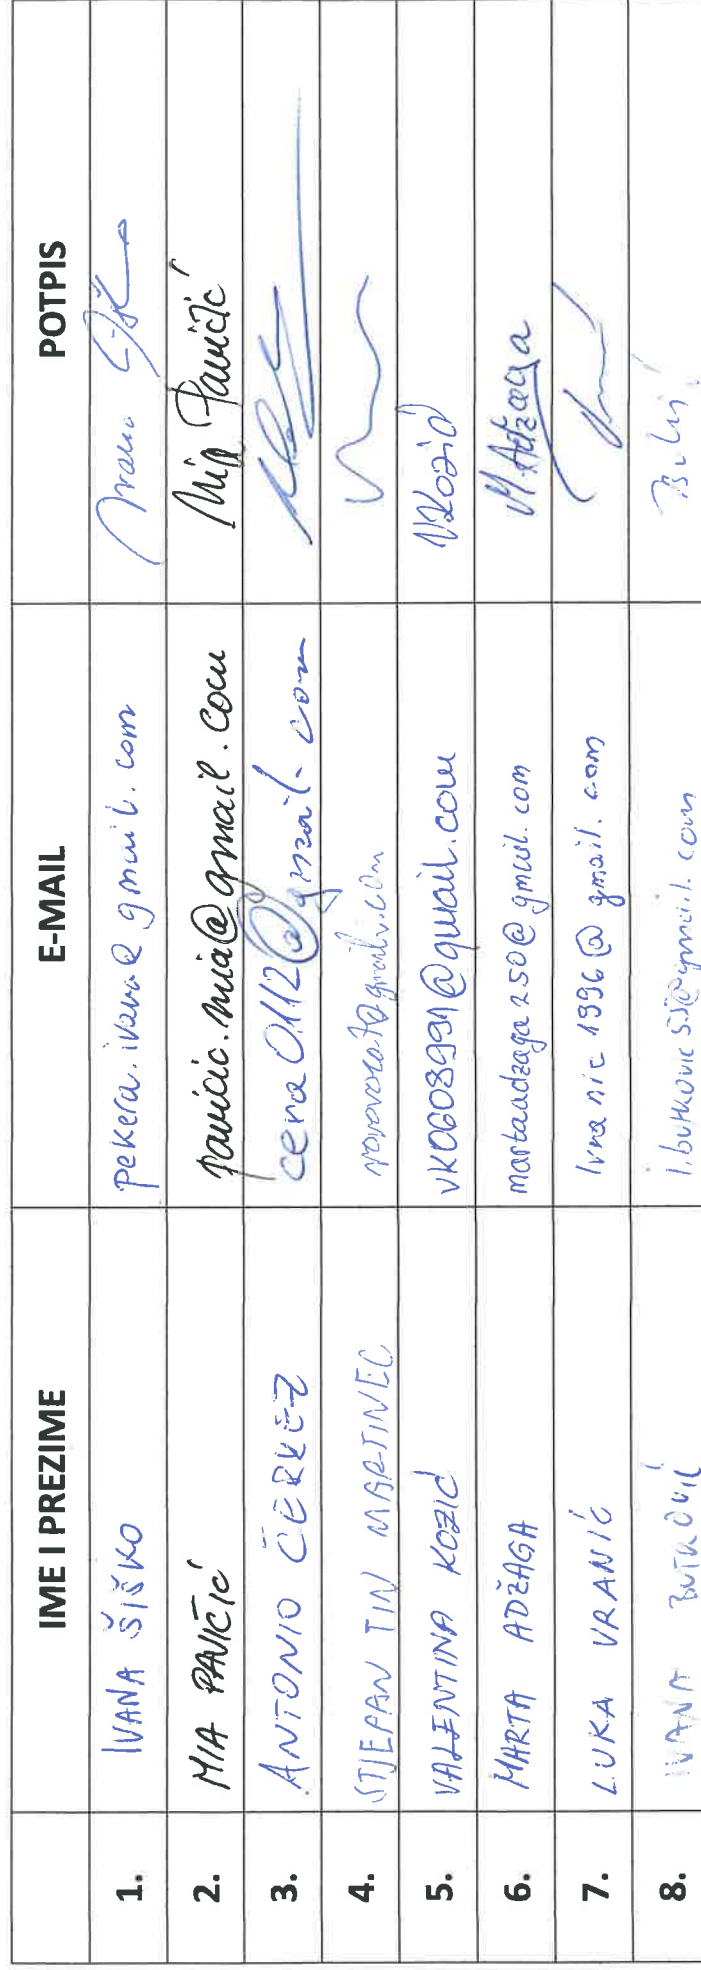 IME I PREZIME E-MAIL POTPIS
1. IVANA ŠIŠKO pekera.ivana@gmail.com Ivana Šiško
2. MIA PAVIČIĆ pavicic.mia@gmail.com Mia Pavičić
3. ANTONIO ČERKEZ cera0112@gmail.com
4. STJEPAN TIN MARTINEC
5. VALENTINA KOZIĆ vk0608991@gmail.com VKozić
6. MARTA ADŽAGA martaadzaga250@gmail.com M.Adžaga
7. LUKA VRANIĆ lvranic1996@gmail.com
8. IVANA BUTKOVIĆ